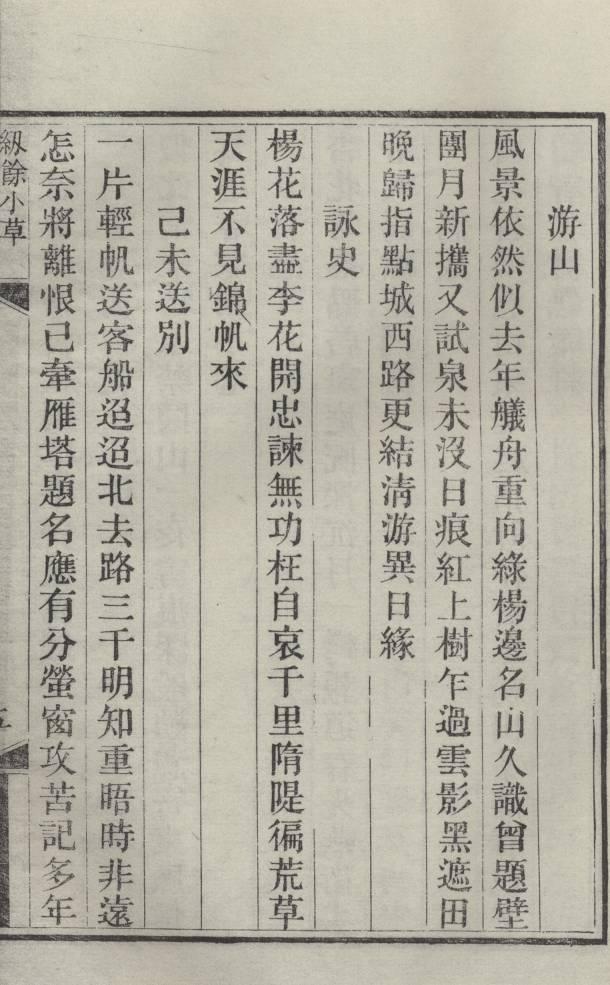 游山
風景依然似去年艤舟重向綠楊邊名山久識曾題壁
團月新攜又試泉未沒日痕紅上樹乍過雲影黑遮田
晚歸指點城西路更結清游異日緣
詠史
楊花落盡李花開忠諫無功枉自哀千里隋隄徧荒草
天涯不見錦帆來
己未送別
一片輕帆送客船迢迢北去路三千明知重晤時非遠
怎奈將離恨已牽雁塔題名應有分螢窗攻苦記多年
紉餘小草
五